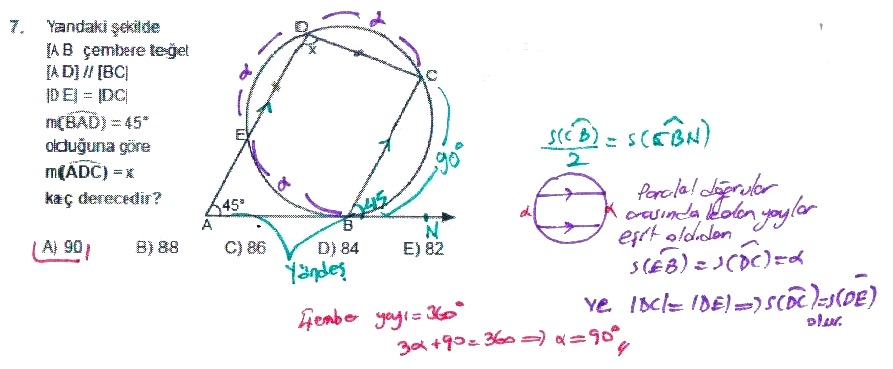 7. Yandaki şekilde
[AB çembere teğet
[AD] // [BC]
|DE| = |DC|
m(BAD) = 45°
olduğuna göre
m(ADC) = x
kaç derecedir?
A) 90 B) 88 C) 86 D) 84 E) 82
D
α
x
C
α
E
90°
α
45°
45
A
B
N
Yöndeş
s(CB)/2 = s(CBN)
α
α
Paralel doğrular
arasında kalan yaylar
eşit olduğundan
s(EB) = s(DC) = α
ve |DC| = |DE| => s(DC) = s(DE)
olur.
Çember yayı = 360°
3α + 90 = 360 => α = 90°